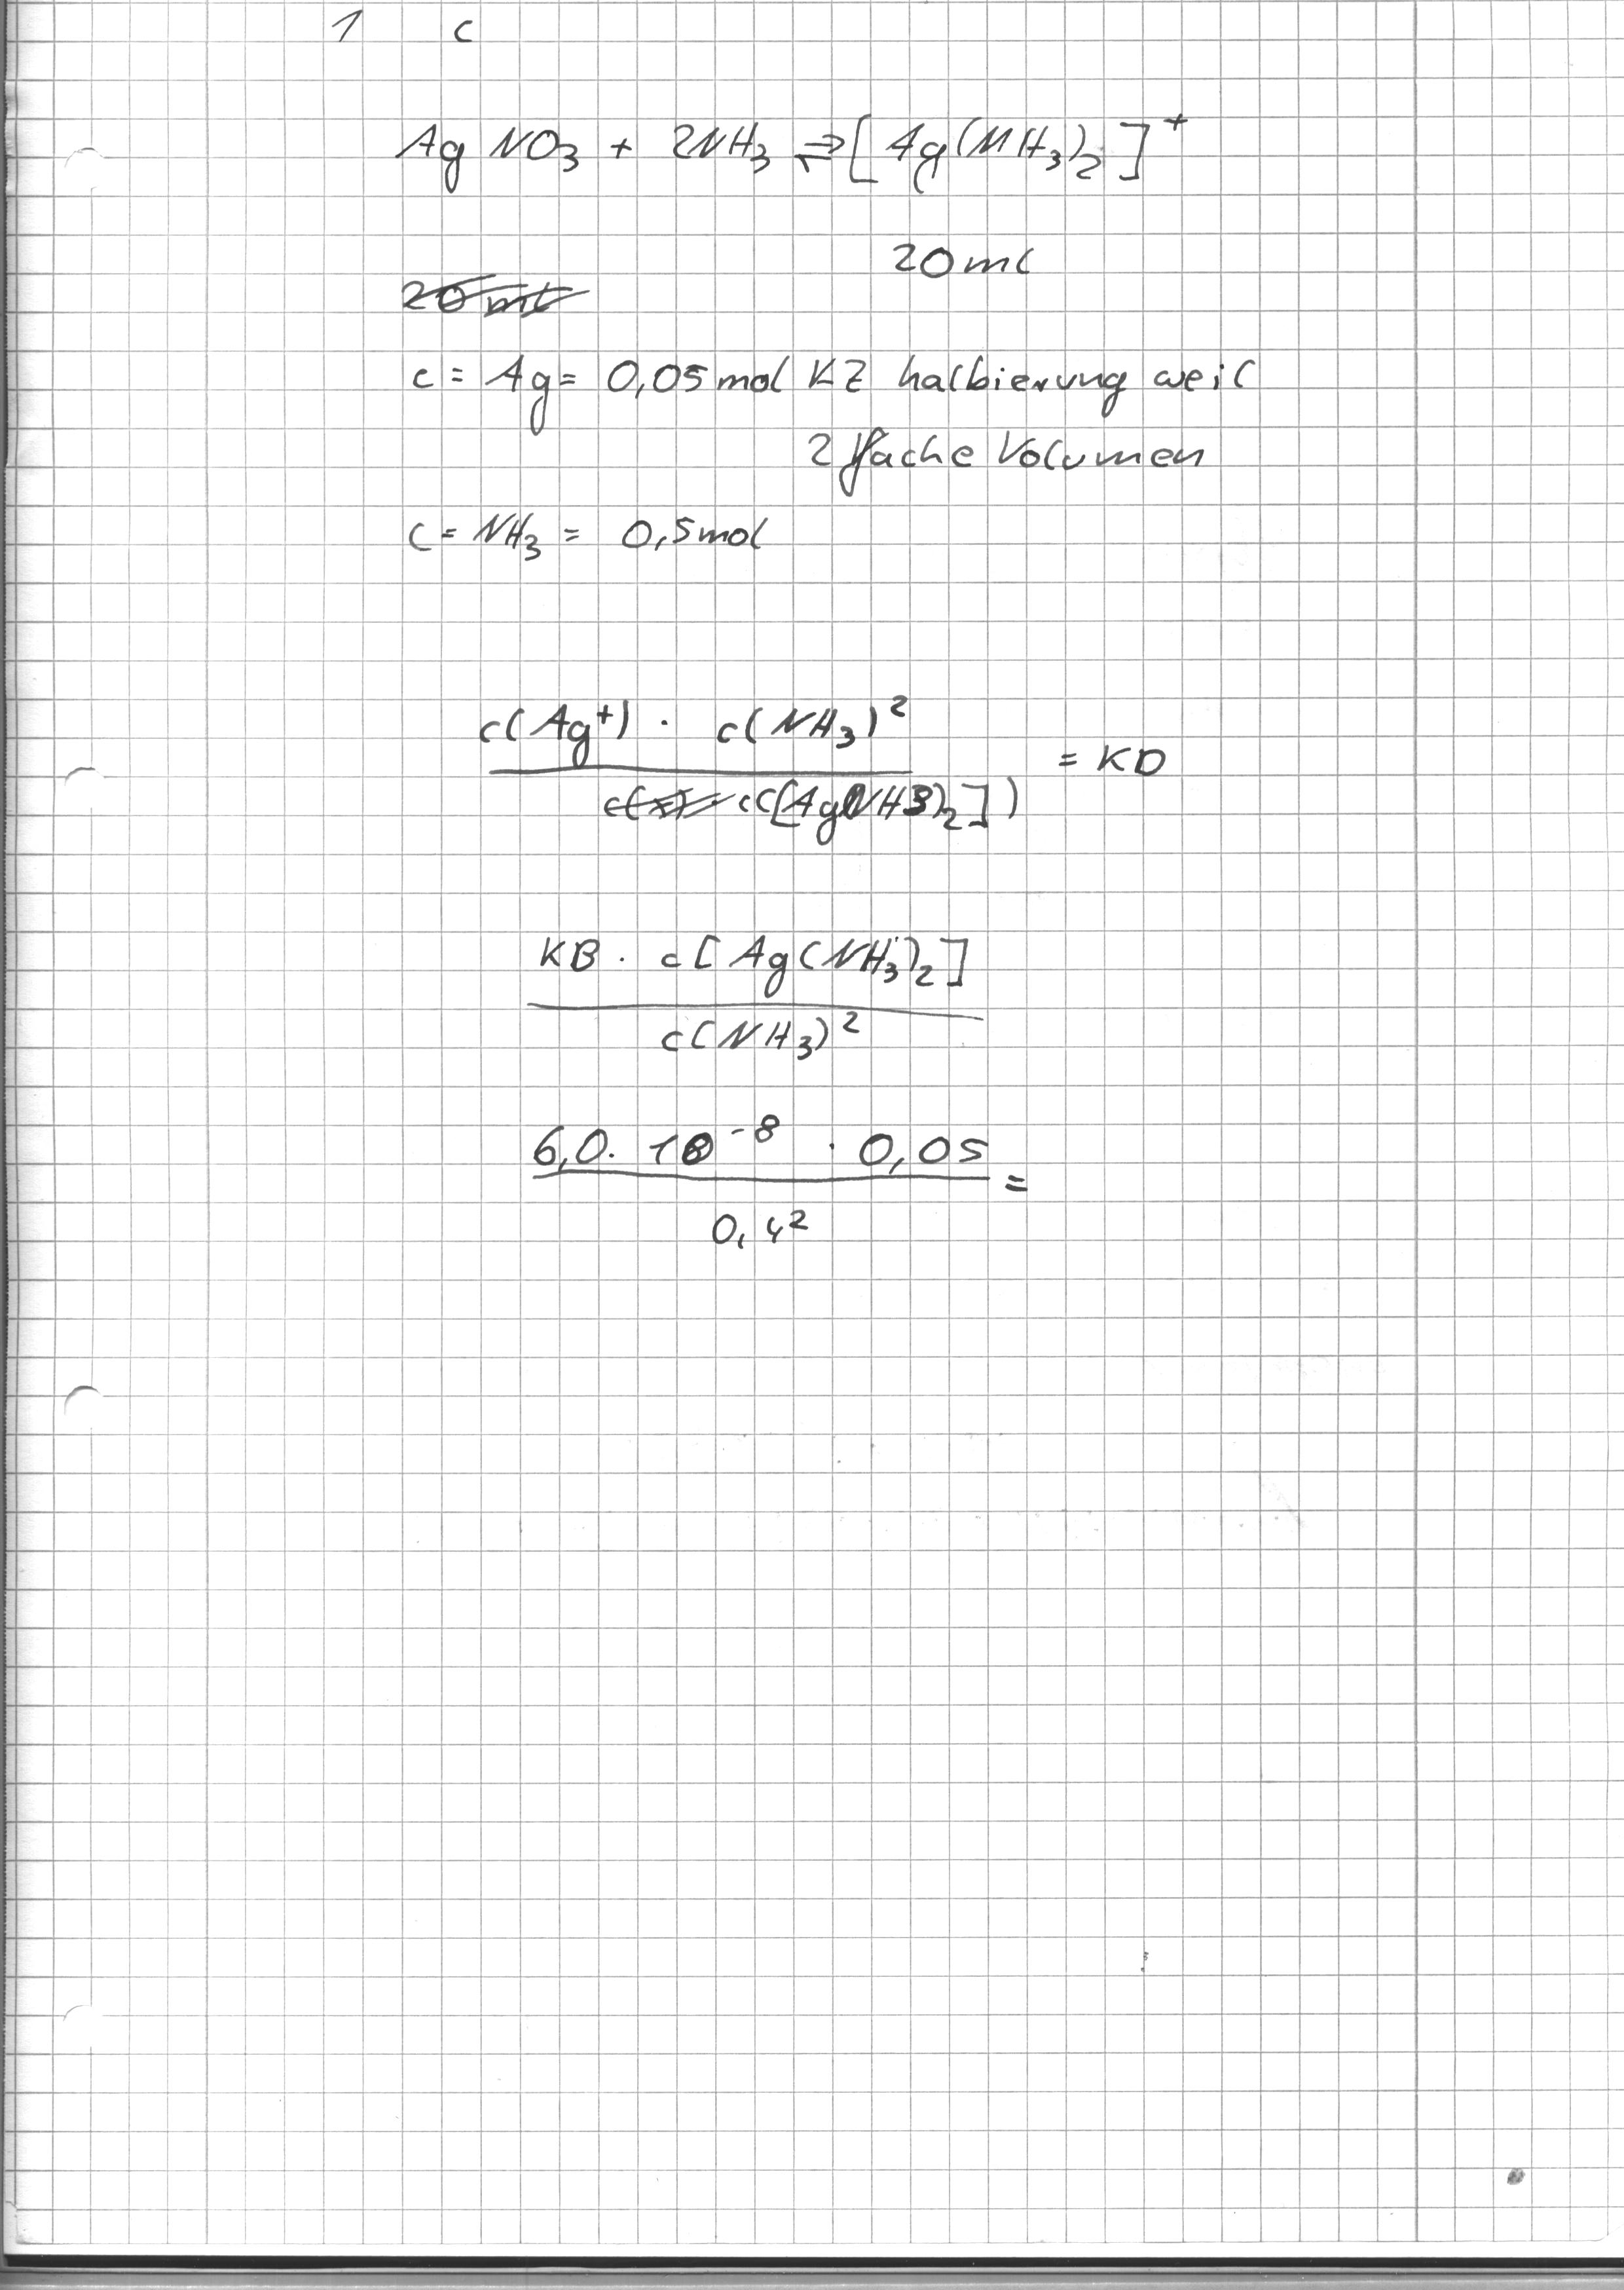 1 c
Ag NO₃ + 2NH₃ ⇌ [Ag(NH₃)₂]⁺
20 ml
20 ml
c = Ag = 0,05 mol KZ halbierung weil
2 fache Volumen
c = NH₃ = 0,5 mol
c(Ag⁺) · c(NH₃)²
= KD
c([Ag(NH3)₂])
KB · c[Ag(NH₃)₂]
c(NH₃)²
6,0 · 10⁻⁸ · 0,05 =
0,4²